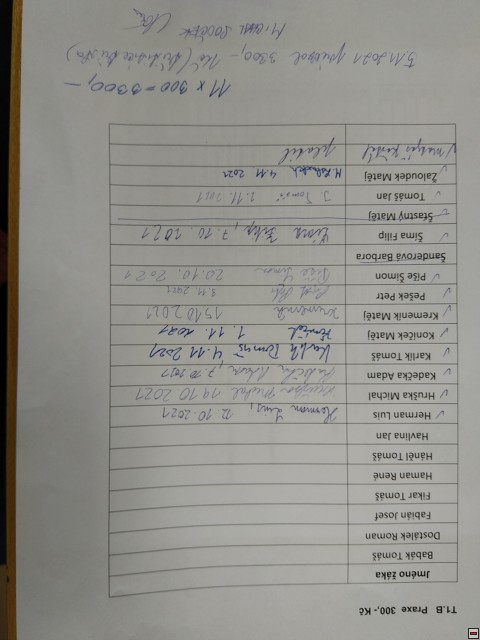 T1.B Praxe 300,-Kč
Jméno žáka
Babák Tomáš
Dostálek Roman
Fabián Josef
Fikar Tomáš
Haman René
Háněl Tomáš
Havlina Jan
✓ Herman Luis Herman Luis, 12.10.2021
✓ Hruška Michal Michal 19.10.2021
✓ Kadečka Adam 7.10.2021
✓ Karlík Tomáš Karlík Tomáš 4.11.2021
✓ Koníček Matěj Koníček 1.11.2021
✓ Kremeník Matěj Kremeník 15.10.2021
✓ Pešek Petr 3.11.2021
✓ Píše Šimon Píše Šimon 20.10.2021
Šanderová Barbora
✓ Šíma Filip Šíma Filip, 7.10.2021
Šťastný Matěj
✓ Tomáš Jan J. Tomáš 2.11.2021
✓ Žaloudek Matěj 4.11.2021
✓ Matyáš platil
11 x 300 = 3300,-
5.11.2021 převzal 3300,- Kč